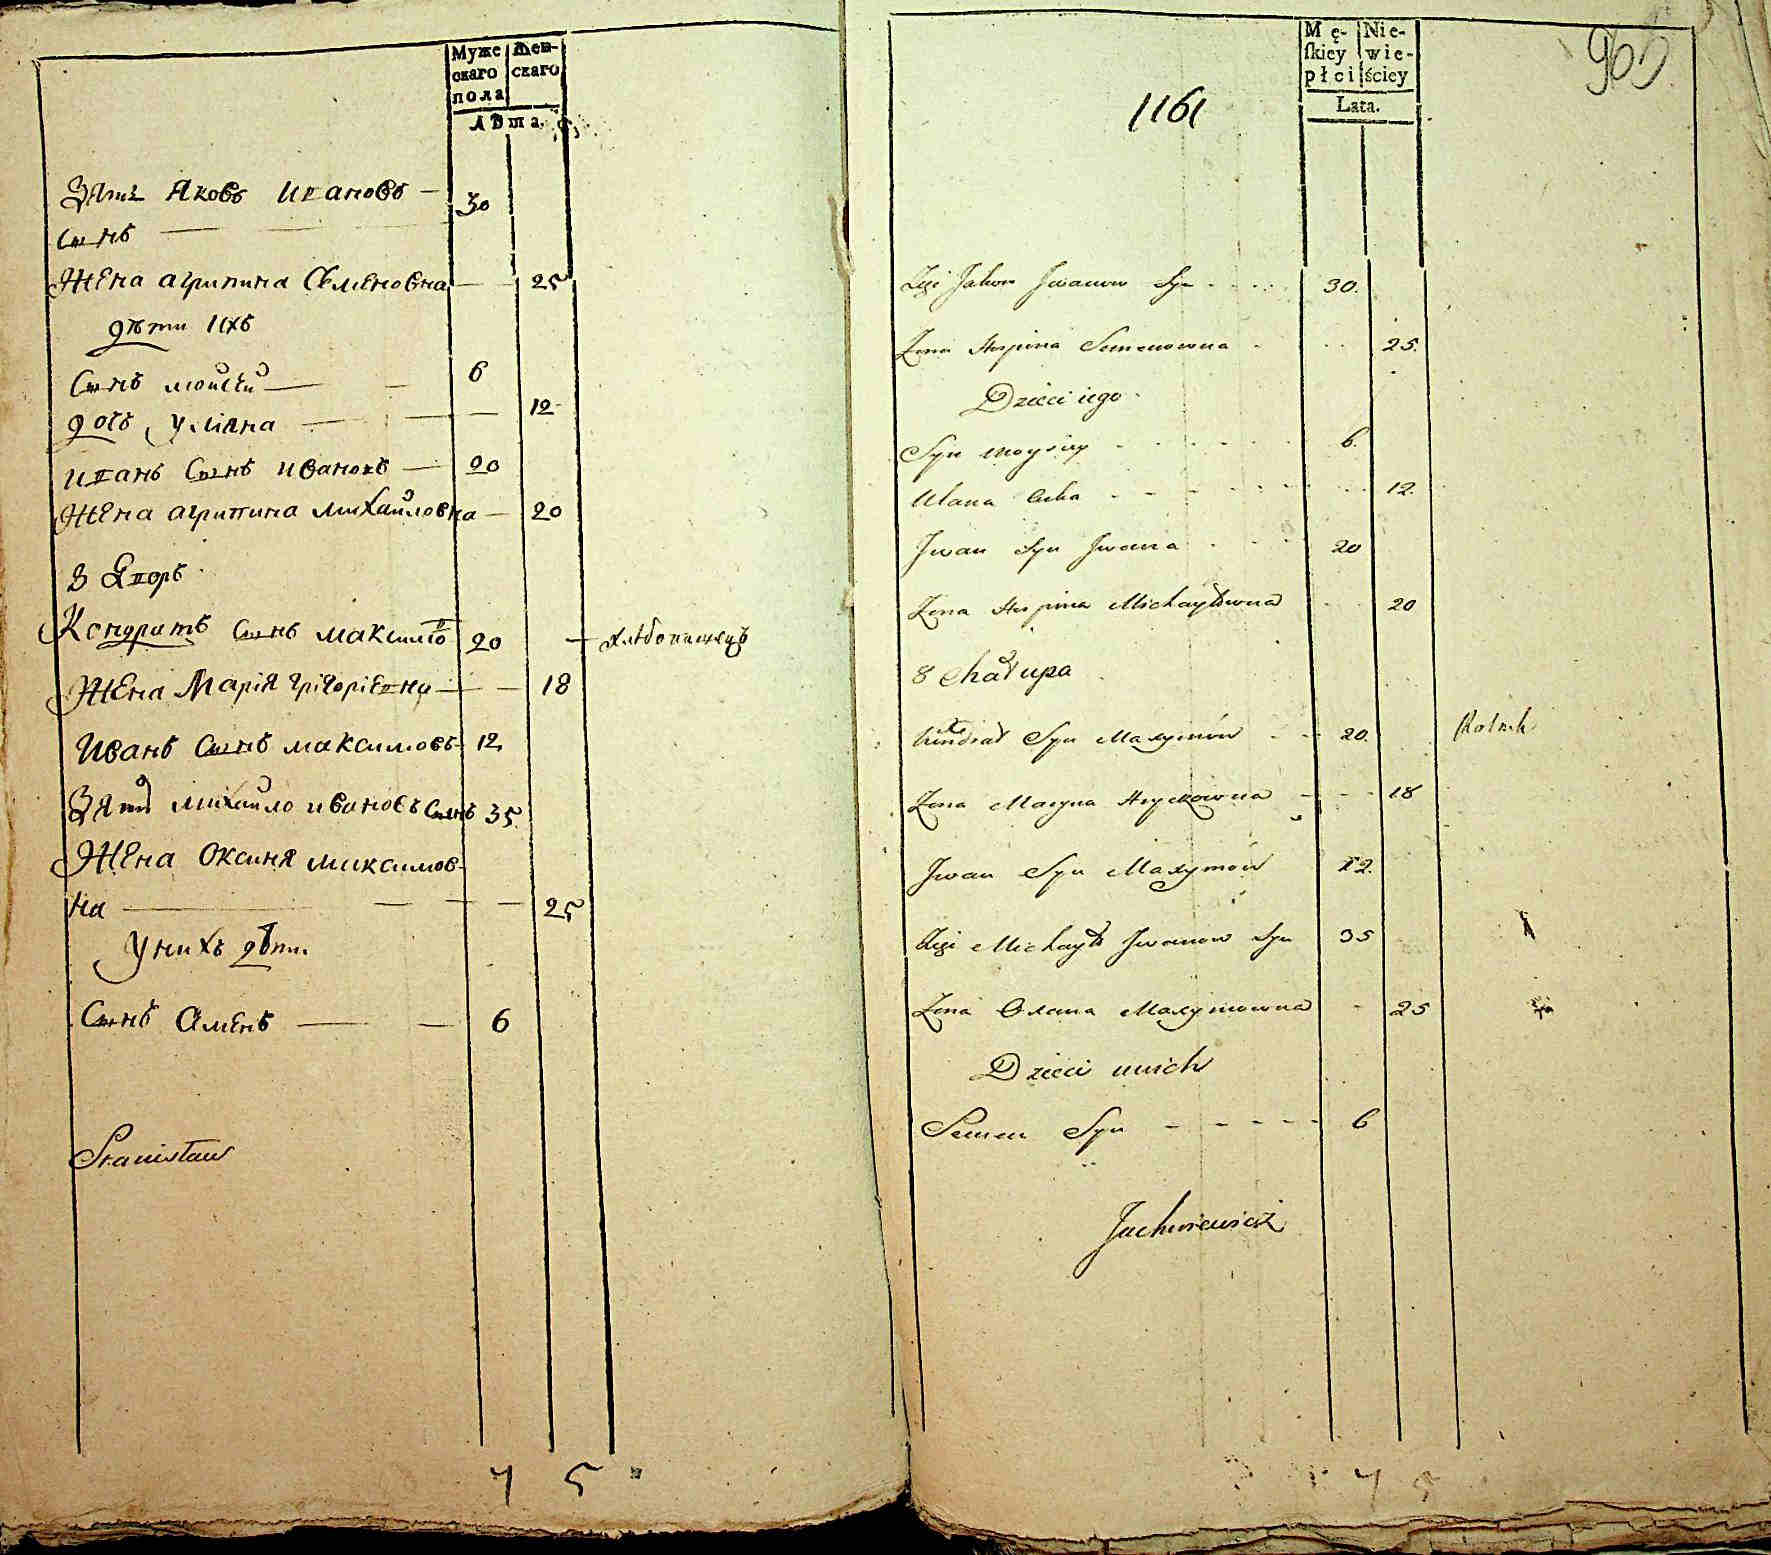 Муже скаго пола
Жен- скаго
Лѣта.
Зять Яковъ Ивановъ — 30
Сынъ
Жена агрипина Семеновна — 25
дѣти Ихъ
Сынъ мойсей — 6
дочь Уліяна — 12
иванъ Сынъ ивановъ — 20
Жена агрипина михайловна — 20
8 Дворъ
Кондратъ Сынъ максимо в 20 — хлѣбопашецъ
Жена Марія григоріевна — 18
Иванъ Сынъ максимовъ 12
Зять михайло ивановъ Сынъ 35
Жена Оксиня максимов-
на — 25
У нихъ дѣти
Сынъ Семенъ — 6
Stanisław
7 5
Mę- skiey płci
Nie- wie- ściey
Lata.
1161
Jakow Jwanow Syn 30.
Zona Hrypina Semenowna 25.
Dzieci iego
Syn moysiey 6.
Ulana 12.
Jwan Syn Jwana 20
Zona Hrypina Michayłowna 20
8 Chałupa
Kindrat Syn Maxymów 20. Rolnik
Zona Maryna Hryckowna 18
Jwan Syn Maxymów 12.
Michayło Jwanow Syn 35
Zona Oxana Maxymowna 25
Dzieci unich
Semen Syn 6
Juchniewicz
7 5